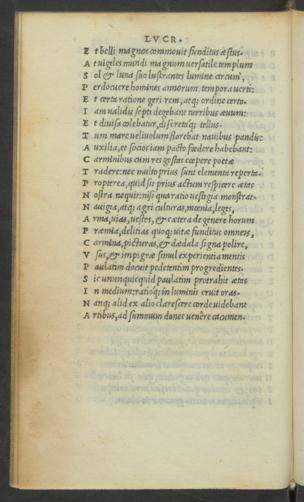 LVCR.
E t belli magnos commouit funditus æstus.
A t uigiles mundi magnum uersatile templum
S ol & luna suo lustrantes lumine circum,
P erdocuere homines annorum tempora uerti:
E t certa ratione geri rem, atq; ordine certo.
I am ualidis septi degebant turribus æuum:
E t diuisa colebatur, discretaq; tellus.
T um mare ueliuolum florebat nauibus pandis:
A uxilia, et socios iam pacto fœdere habebant:
C arminibus cum res gestas cœpere poetæ
T radere: nec multo prius sunt elementa reperta.
P ropterea, quid sit prius actum respicere ætas
N ostra nequit: nisi qua ratio uestigia monstrat.
N auigia, atq; agri culturas, mœnia, leges,
A rma, uias, uestes, & cætera de genere horum
P ræmia, delitias quoq; uitæ funditus omneis,
C armina, picturas, & dædala signa polire,
V sus, & impigræ simul experientia mentis
P aulatim docuit pedetentim progredientes.
S ic unumquicquid paulatim protrahit ætas
I n medium: ratioq; in luminis eruit oras.
N anq; alid ex alio clarescere corde uidebant
A rtibus, ad summum donec uenêre cacumen.